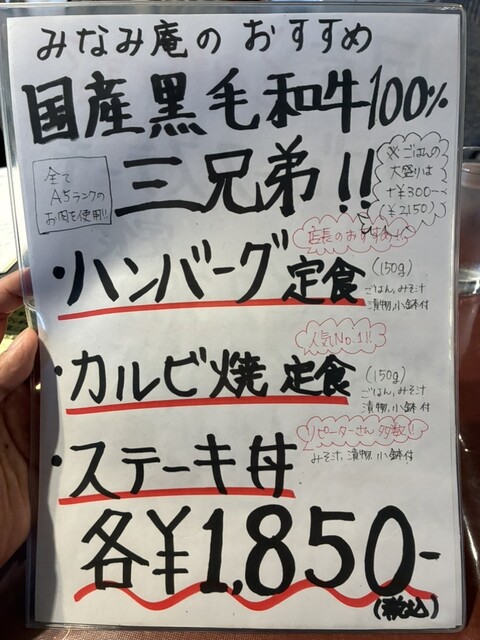 みなみ庵のおすすめ
国産黒毛和牛100%
三兄弟!!
全て
A5ランクの
お肉を使用!!
※ごはんの
大盛りは
+¥300-
(¥2,150)
店長のおすすめ!!
・ハンバーグ定食
(150g)
ごはん、みそ汁
漬物、小鉢付
人気No.1!!
・カルビ焼定食
(150g)
ごはん、みそ汁
漬物、小鉢付
リピーターさん多数!!
・ステーキ丼
みそ汁、漬物、小鉢付
各¥1,850-
(税込)